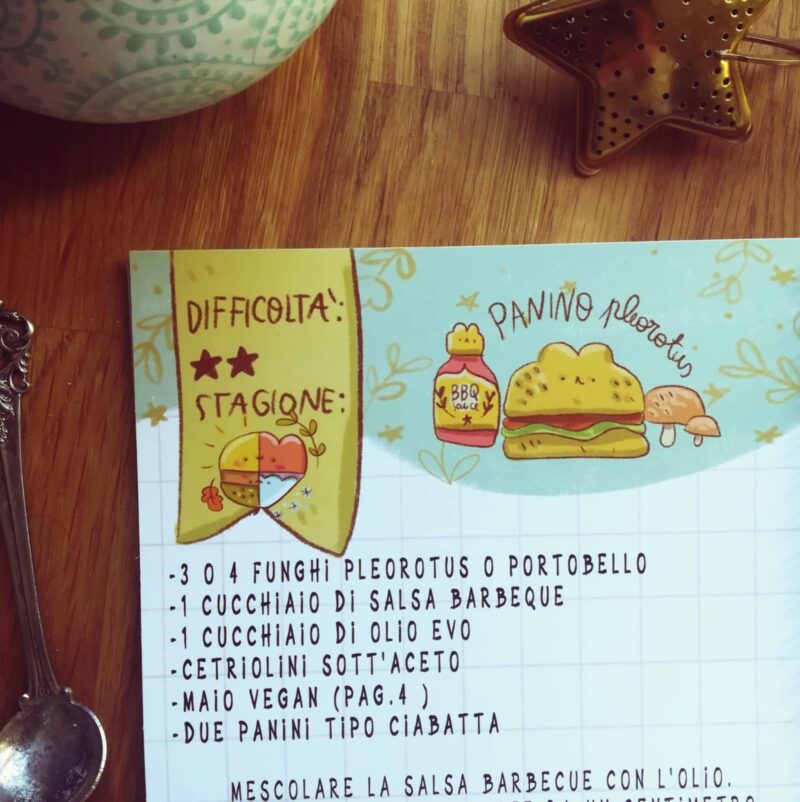 DIFFICOLTA':
STAGIONE:
PANINO pleorotus
BBQ
sauce
-3 O 4 FUNGHI PLEOROTUS O PORTOBELLO
-1 CUCCHIAIO DI SALSA BARBEQUE
-1 CUCCHIAIO DI OLIO EVO
-CETRIOLINI SOTT'ACETO
-MAIO VEGAN (PAG.4 )
-DUE PANINI TIPO CIABATTA
MESCOLARE LA SALSA BARBECUE CON L'OLIO.
UN CENTIMETRO